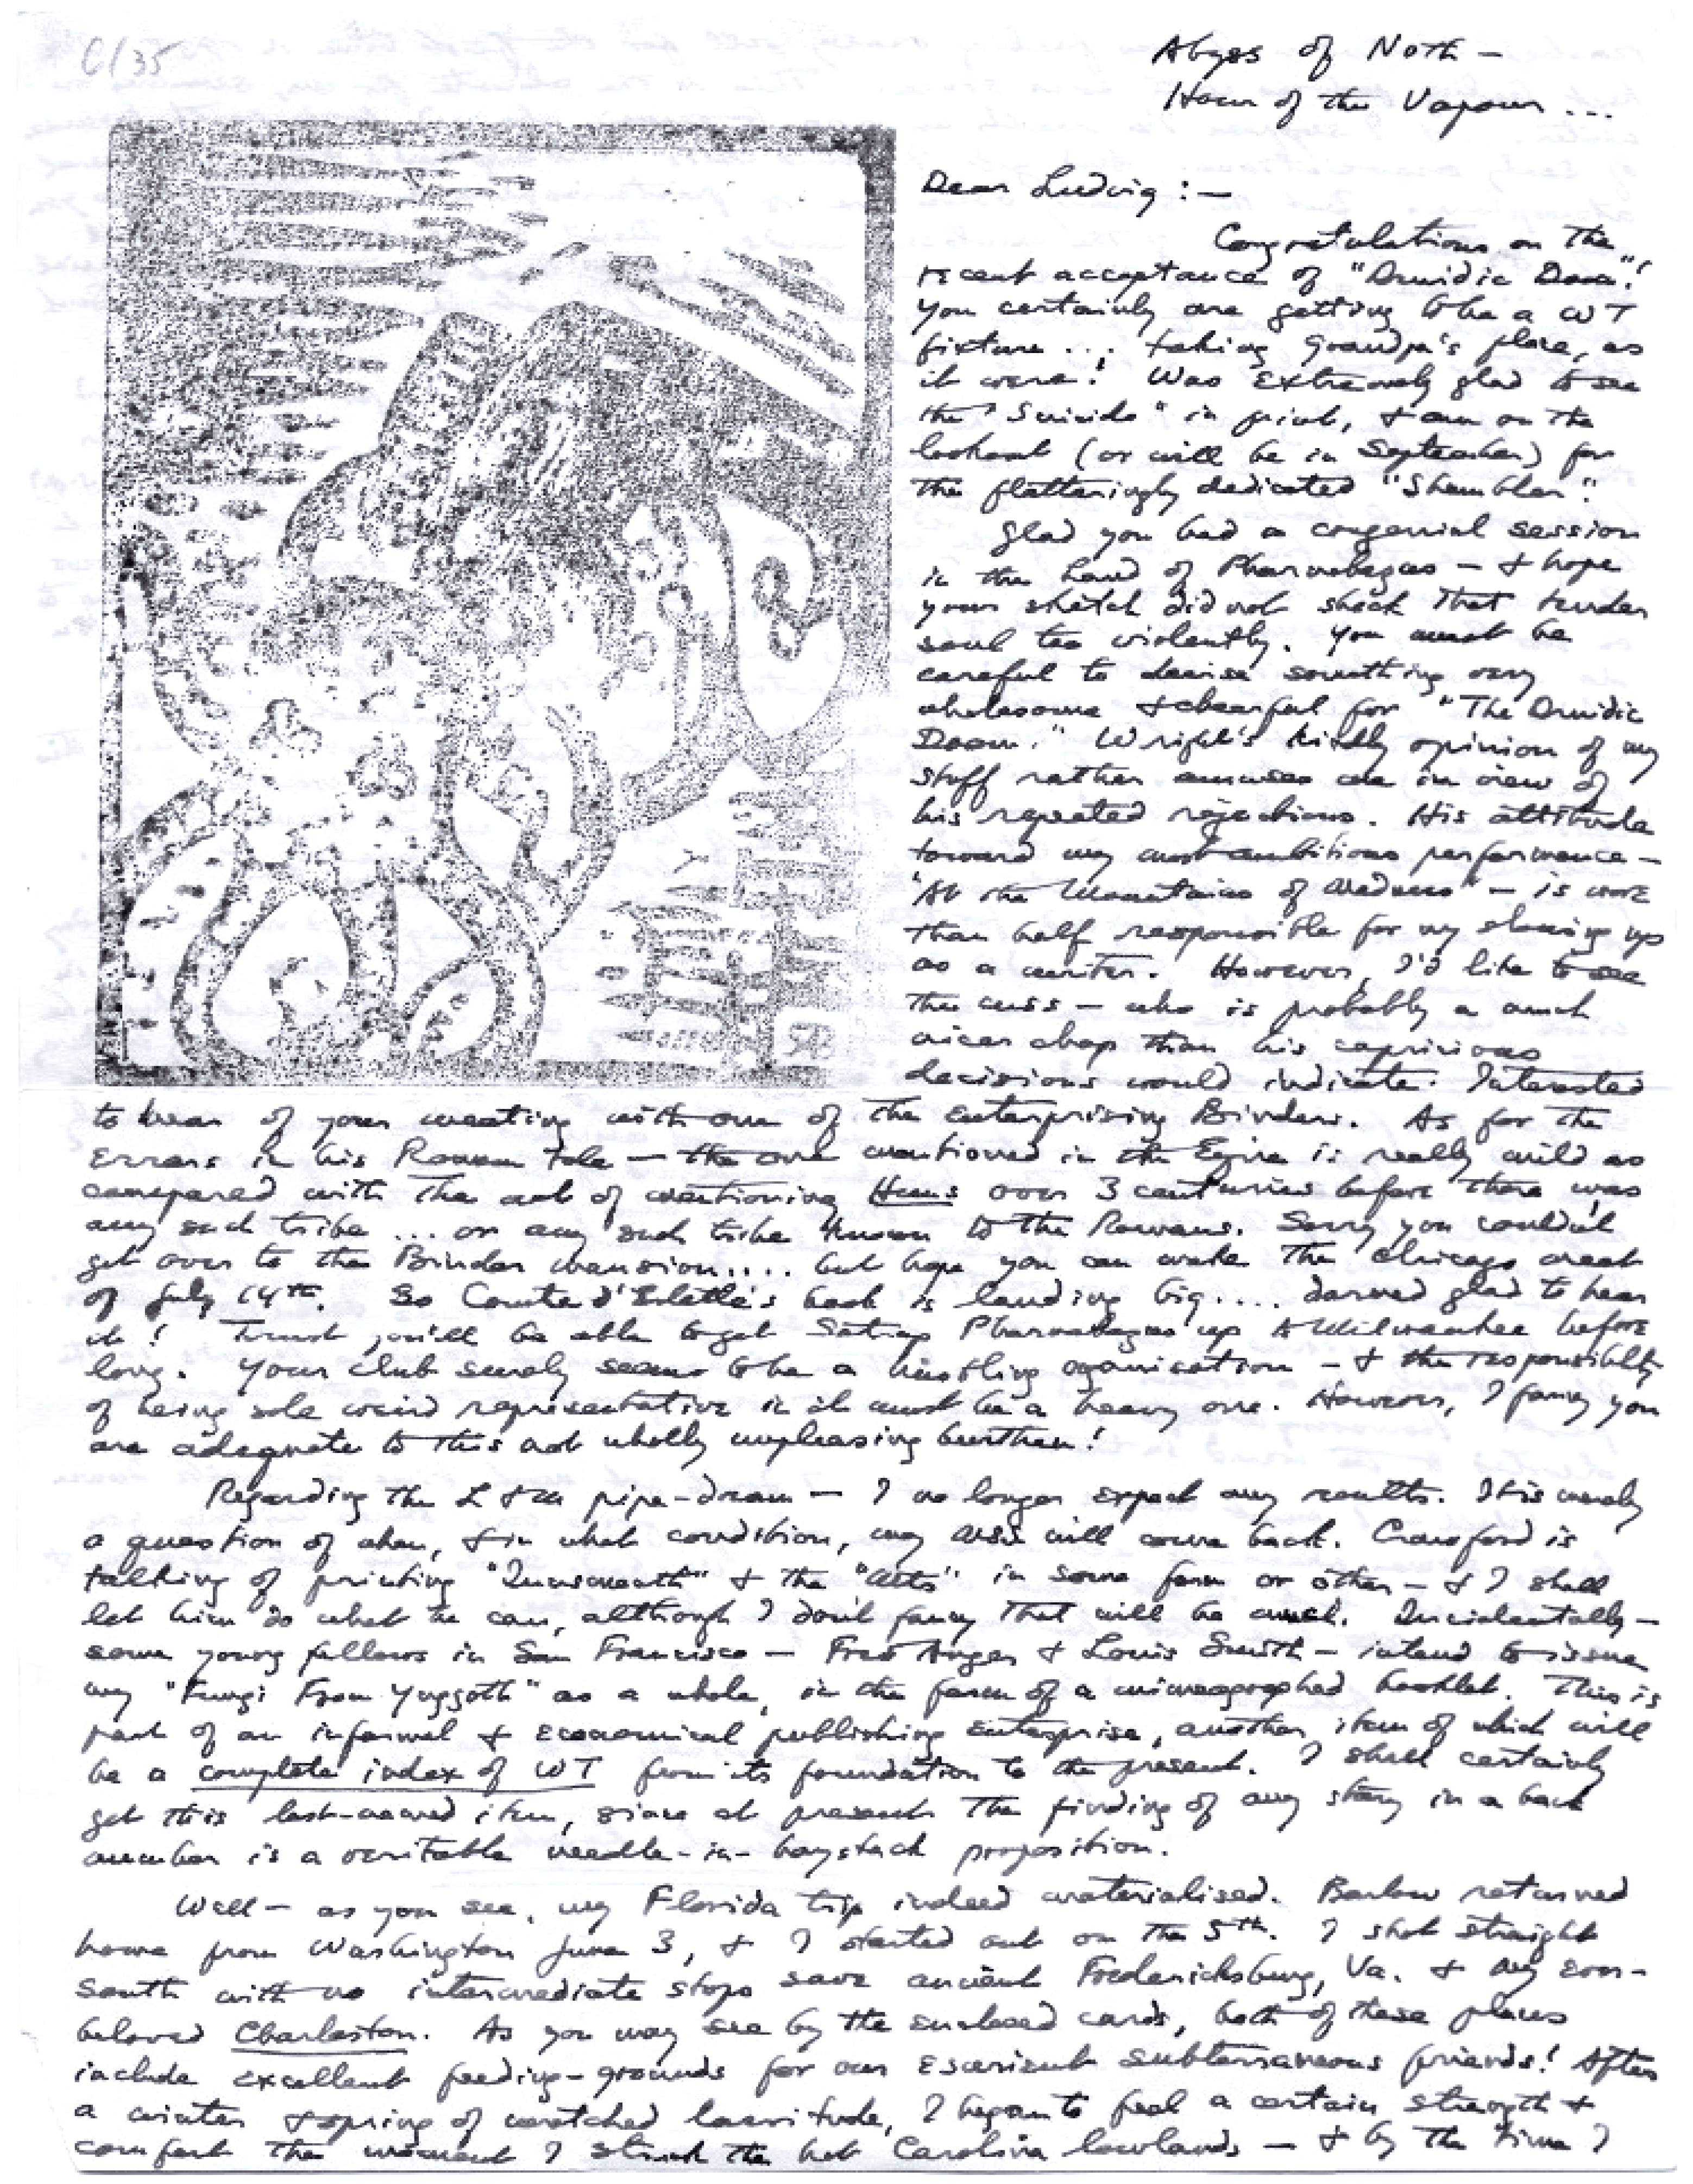 6/35
Abyss of Noth —
Hour of the Vapour ...
Dear Ludvig : —
Congratulations on the
recent acceptance of "Druidic Doom"!
You certainly are getting to be a WT
fixture ... taking Grandpa's place, as
it were! Was extremely glad to see
the "Suicide" in print, & am on the
lookout (or will be in September) for
the flatteringly dedicated "Shambler".
Glad you had a congenial session
in the Land of Pharnabazus — & hope
your sketch did not shock that tender
soul too violently. You must be
careful to devise something very
wholesome & cheerful for "The Druidic
Doom." Wright's kindly opinion of my
stuff rather amuses me in view of
his repeated rejections. His attitude
toward my most ambitious performance —
"At the Mountains of Madness" — is more
than half responsible for my slowing up
as a writer. However, I'd like to see
the cuss — who is probably a much
nicer chap than his capricious
decisions would indicate. Interested
to hear of your meeting with one of the enterprising Binders. As for the
errors in his Roman tale — the one mentioned in the Eyrie is really mild as
compared with the act of mentioning Huns over 3 centuries before there was
any such tribe ... or any such tribe known to the Romans. Sorry you couldn't
get over to the Binder mansion .... but hope you can make the Chicago meet
of July 14th. So Comte d'Erlette's book is landing big .... darned glad to hear
it! Trust you'll be able to get Satrap Pharnabazus up to Milwaukee before
long. Your club surely seems to be a hustling oganisation — & the responsibilty
of being sole weird representative in it must be a heavy one. However, I fancy you
are adequate to this not wholly unpleasing burthen!
Regarding the L & M pipe-dream — I no longer expect any results. It is merely
a question of when, & in what condition, my MSS. will come back. Crawford is
talking of printing "Innsmouth" & the "Mts" in some form or other — & I shall
let him do what he can, although I don't fancy that will be much. Incidentally —
some young fellows in San Francisco — Fred Anger & Louis Smith — intend to issue
my "Fungi From Yuggoth" as a whole, in the form of a mimeographed booklet. This is
part of an informal & economical publishing enterprise, another item of which will
be a complete index of WT from its foundation to the present. I shall certainly
get this last-named item, since at present the finding of any story in a back
number is a veritable needle-in-haystack proposition.
Well — as you see, my Florida trip indeed materialised. Barlow returned
home from Washington June 3, & I started out on the 5th. I shot straight
south with no intermediate stops save ancient Fredericksburg, Va. & my ever-
beloved Charleston. As you may see by the enclosed cards, both of these places
include excellent feeding-grounds for our esurient subterraneous friends! After
a winter & spring of wretched lassitude, I began to feel a certain strength &
comfort the moment I struck the hot Carolina lowlands — & by the time I